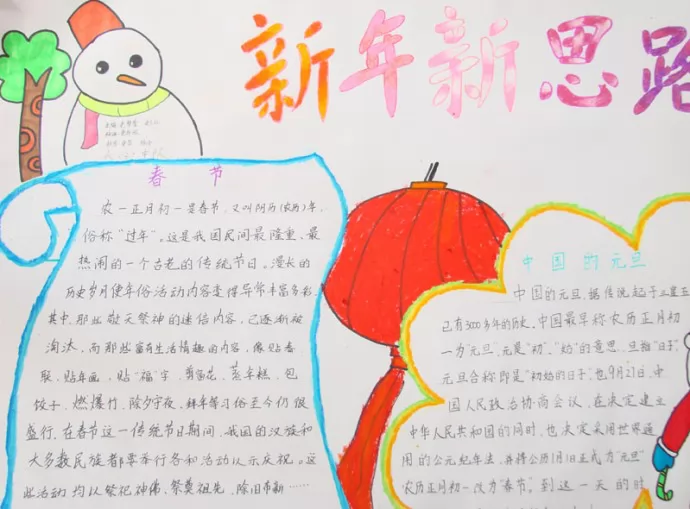 新年新思路
春节
农一正月初一是春节，又叫阴历(农历)年，
俗称“过年”。这是我国民间最隆重、最
热闹的一个古老的传统节日。漫长的
历史岁月使年俗活动内容变得异常丰富多彩，
其中，那些敬天祭神的迷信内容，已逐渐被
淘汰，而那些富有生活情趣的内容，像贴春
联、贴年画、贴“福”字、剪窗花、蒸年糕、包
饺子、燃爆竹、除夕守夜、拜年等习俗至今仍很
盛行。在春节这一传统节日期间，我国的汉族和
大多数民族都要举行各种活动以示庆祝。这
些活动均以祭祀神佛、祭奠祖先、除旧布新……
中国的元旦
中国的元旦，据传说起于三皇五
已有3000多年的历史。中国最早称农历正月初
一为“元旦”，元是“初”、“始”的意思，旦指“日子”，
元旦合称即是“初始的日子”。也9月27日，中
国人民政治协商会议，在决定建立
中华人民共和国的同时，也决定采用世界通
用的公元纪年法，并将公历1月1日正式为“元旦”
农历正月初一改为“春节”。到这一天的时